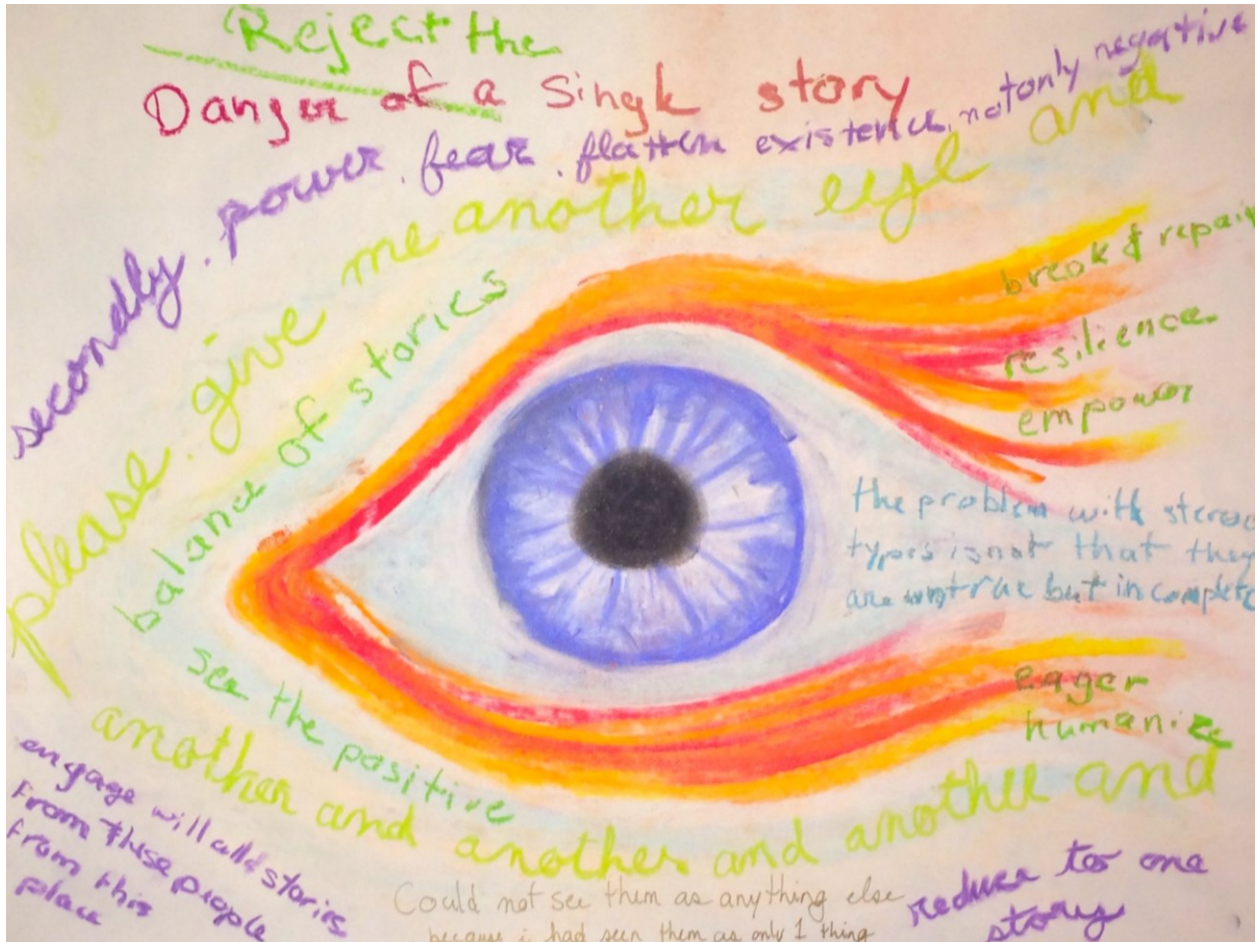 Reject the
Danger of a Single story
secondly. power. fear. flatten existence, not only negative
please. give me another eye and
balance of stories
break & repair
resilience
empower
the problem with stereo
types is not that they
are untrue but incomplete
eager
humanize
see the positive
another and another and another and
engage will all stories
from these people
from this
place
Could not see them as anything else
because i had seen them as only 1 thing
reduce to one
story